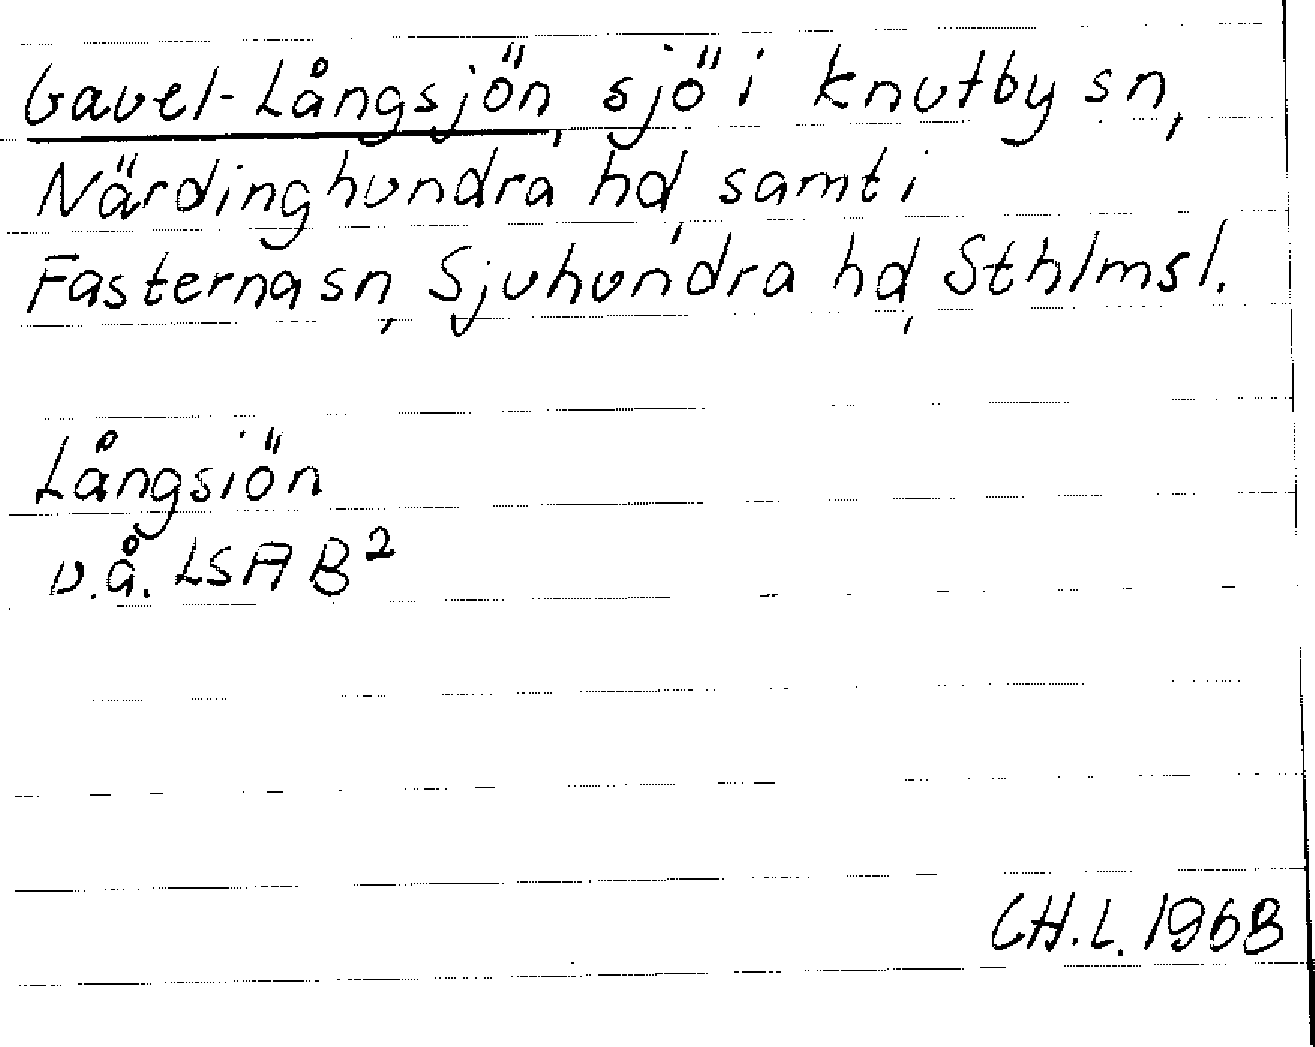 Gavel-Långsjön, sjö i Knutby sn,
Närdinghundra hd, samt i
Fasterna sn, Sjuhundra hd, Sthlmsl.
Långsiön
u.å. LSA B²
CH.L. 1968